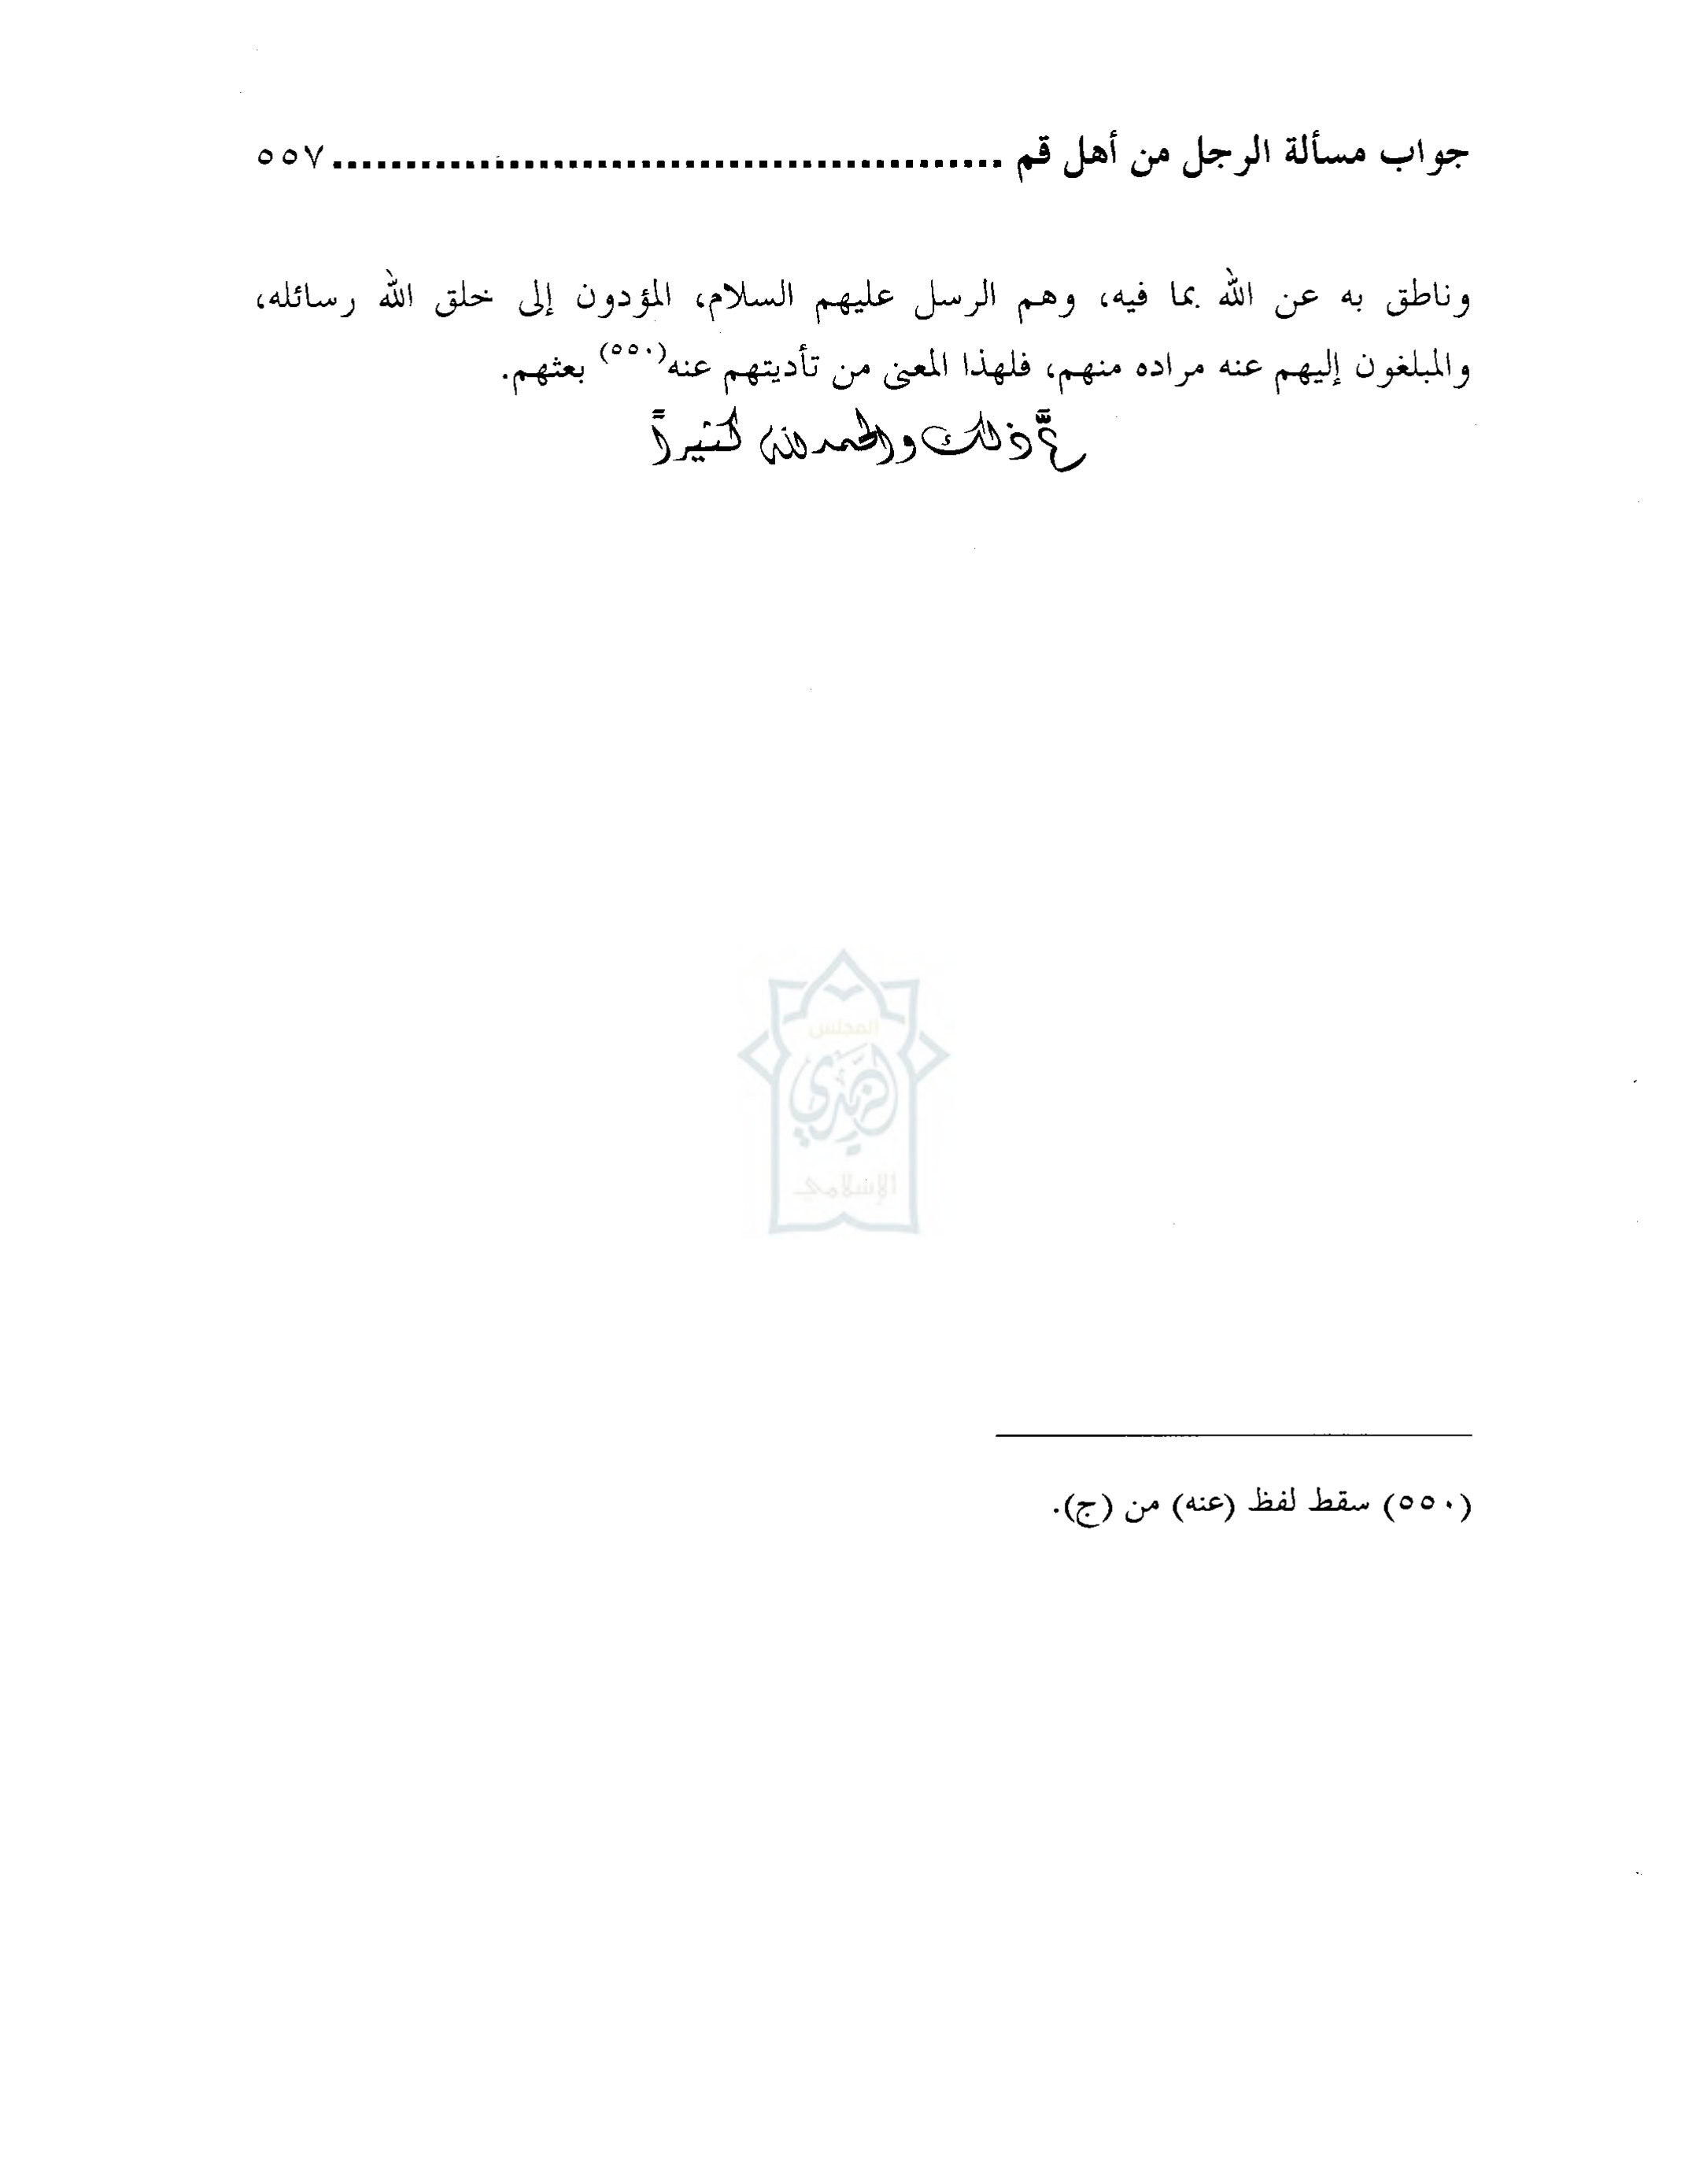 جواب مسألة الرجل من أهل قم .............................................. ٥٥٧
وناطق به عن الله بما فيه، وهم الرسل عليهم السلام، المؤدون إلى خلق الله رسائله،
والمبلغون إليهم عنه مراده منهم، فلهذا المعنى من تأديتهم عنه(٥٥٠) بعثهم.
تمَّ ذلك والحمد لله كثيراً
المجلس
الزيدي
الإسلامي
(٥٥٠) سقط لفظ (عنه) من (ج).